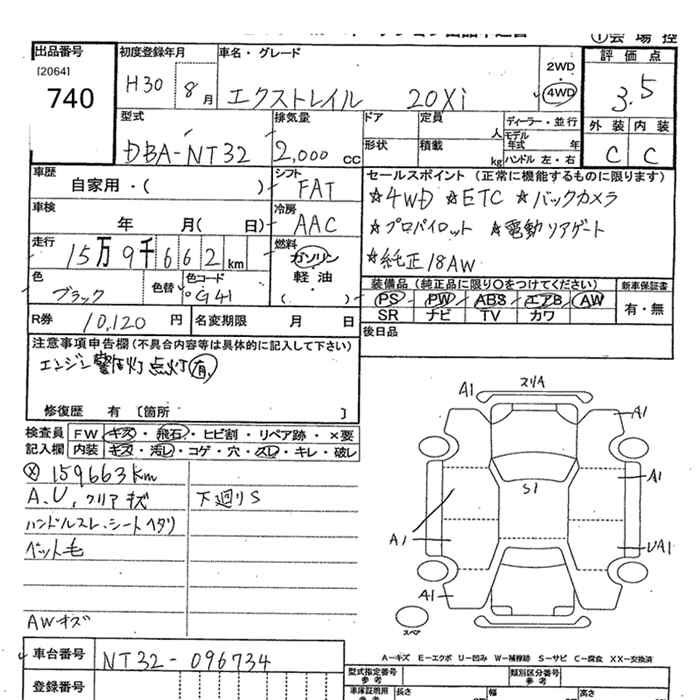 ①会場控
出品番号
[2064]
740
初度登録年月
H30 8月
車名・グレード
エクストレイル 20Xi
2WD
4WD
評価点
3.5
外装 内装
C C
型式
DBA-NT32
排気量
2,000 cc
ドア 定員 人
形状 積載 kg
ディーラー・並行
モデル年式 年
ハンドル 左・右
車歴
自家用・( )
シフト
FAT
車検
年 月( 日)
冷房
AAC
走行
15万9千662km
燃料
ガソリン
軽油
( )
色
ブラック
色替
色コード
G41
セールスポイント (正常に機能するものに限ります)
☆4WD ☆ETC ☆バックカメラ
☆プロパイロット ☆電動リアゲート
☆純正18AW
装備品 (純正品に限り○をつけてください)
PS PW ABS エアB AW
SR ナビ TV カワ
新車保証書
有・無
後日品
R券 10,120円 名変期限 月 日
注意事項申告欄(不具合内容等は具体的に記入して下さい)
エンジン警告灯点灯有
修復歴 有 [箇所 ]
検査員 FW キズ・飛石・ヒビ割・リペア跡・×要
記入欄 内装 キズ・汚レ・コゲ・穴・スレ・キレ・破レ
159663km
A.U.クリアキズ 下廻りS
ハンドルスレ、シートヘタリ
ペット毛
AWキズ
A1 スリA
A1
S1 A1
A1 UA1
A1
スペア
A-キズ E-エクボ U-凹み W-補修跡 S-サビ C-腐食 XX-交換済
車台番号 NT32-096734
登録番号
型式指定番号 参考
類別区分番号 参考
車庫証明用 参考 長さ 幅 高さ